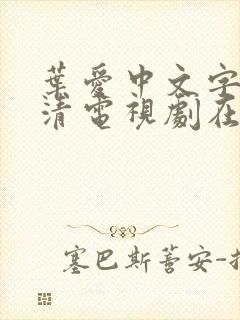 葉愛中文字
清電視劇在
塞巴斯蒂安-